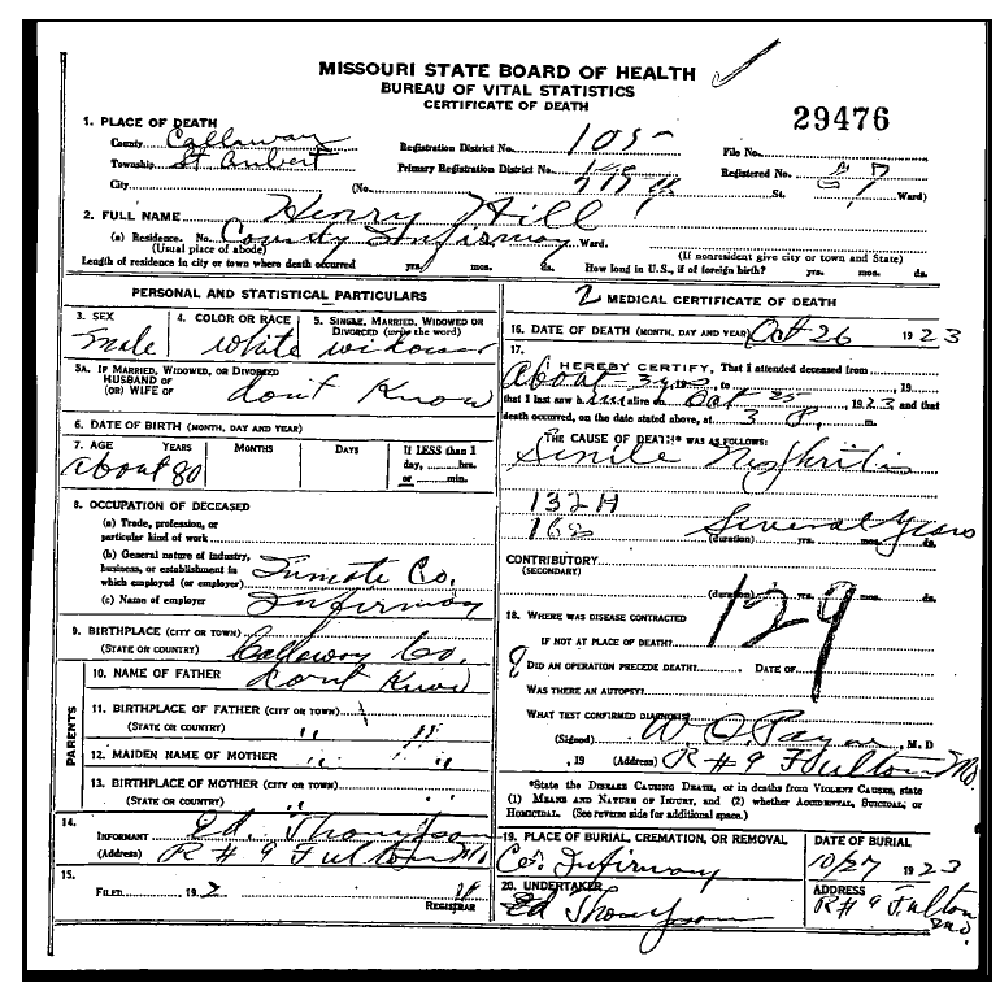 MISSOURI STATE BOARD OF HEALTH
BUREAU OF VITAL STATISTICS
CERTIFICATE OF DEATH
29476
1. PLACE OF DEATH
County Callaway Registration District No. 105 File No.
Township St Aubert Primary Registration District No. Registered No.
City (No. St. Ward)
2. FULL NAME Henry Hill
(a) Residence. No. County Infirmary Ward.
(Usual place of abode) (If nonresident give city or town and State)
Length of residence in city or town where death occurred yrs. mos. ds. How long in U.S., if of foreign birth? yrs. mos. ds.
PERSONAL AND STATISTICAL PARTICULARS
3. SEX 4. COLOR OR RACE 5. SINGLE, MARRIED, WIDOWED OR DIVORCED (write the word)
male white widower
5A. IF MARRIED, WIDOWED, OR DIVORCED
HUSBAND OF
(OR) WIFE OF dont Know
6. DATE OF BIRTH (MONTH, DAY AND YEAR)
7. AGE YEARS MONTHS DAYS If LESS than 1 day, hrs. or min.
about 80
8. OCCUPATION OF DECEASED
(a) Trade, profession, or
particular kind of work
(b) General nature of industry,
business, or establishment in
which employed (or employer) Inmate Co.
(c) Name of employer Infirmary
9. BIRTHPLACE (CITY OR TOWN)
(STATE OR COUNTRY) Callaway Co.
PARENTS
10. NAME OF FATHER dont Know
11. BIRTHPLACE OF FATHER (CITY OR TOWN)
(STATE OR COUNTRY) " "
12. MAIDEN NAME OF MOTHER " "
13. BIRTHPLACE OF MOTHER (CITY OR TOWN)
(STATE OR COUNTRY) " "
14.
INFORMANT Ed. Thompson
(Address) R # 9 Fulton Mo
15.
FILED 192 REGISTRAR
2 MEDICAL CERTIFICATE OF DEATH
16. DATE OF DEATH (MONTH, DAY AND YEAR) Oct 26 1923
17.
I HEREBY CERTIFY, That I attended deceased from
about to , 19
that I last saw h alive on Oct 25, 1923, and that
death occurred, on the date stated above, at 3 P. m.
THE CAUSE OF DEATH* WAS AS FOLLOWS:
Senile Nephritis
132H
Several Years
(duration) yrs. mos. ds.
CONTRIBUTORY
(SECONDARY)
(duration) yrs. mos. ds.
129
18. WHERE WAS DISEASE CONTRACTED
IF NOT AT PLACE OF DEATH?
DID AN OPERATION PRECEDE DEATH? DATE OF
WAS THERE AN AUTOPSY?
WHAT TEST CONFIRMED DIAGNOSIS?
(Signed) W O. Payne, M. D
, 19 (Address) R # 9 Fulton Mo.
*State the DISEASE CAUSING DEATH, or in deaths from VIOLENT CAUSES, state
(1) MEANS AND NATURE OF INJURY, and (2) whether ACCIDENTAL, SUICIDAL, or
HOMICIDAL. (See reverse side for additional space.)
19. PLACE OF BURIAL, CREMATION, OR REMOVAL DATE OF BURIAL
Co. Infirmary 10/27 1923
20. UNDERTAKER ADDRESS
Ed Thompson R# 9 Fulton
Mo.